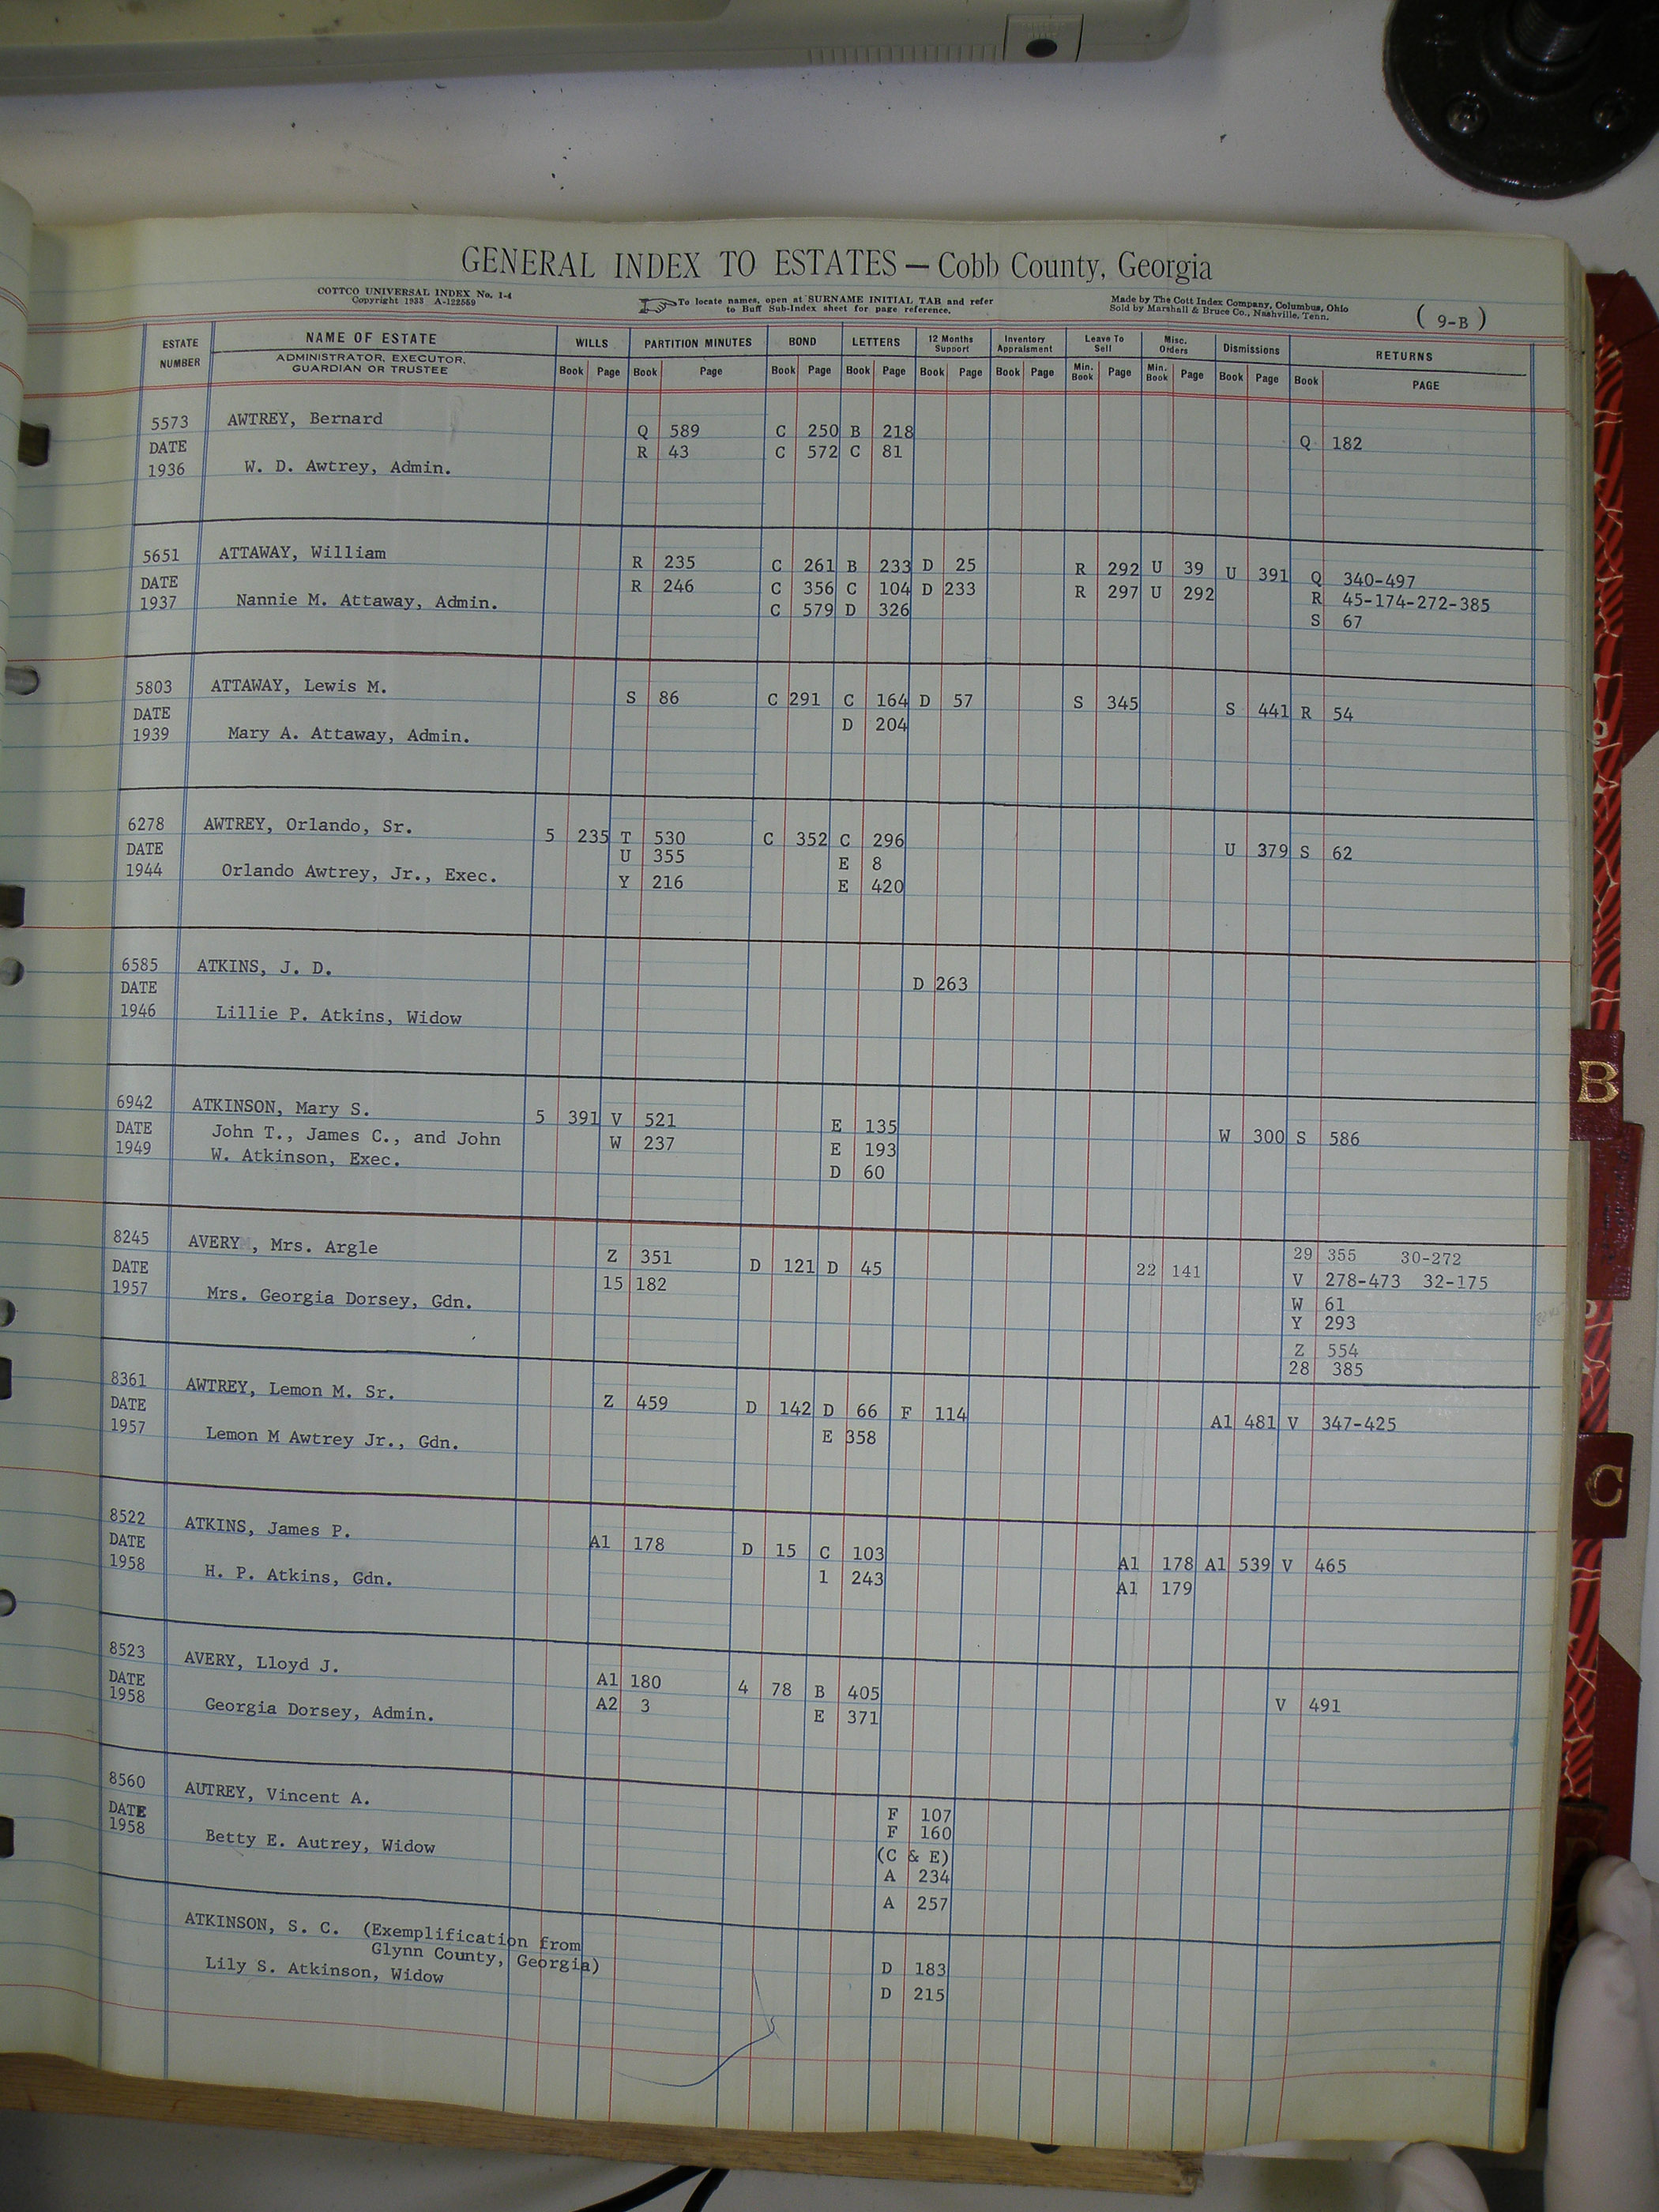 GENERAL INDEX TO ESTATES — Cobb County, Georgia
COTTCO UNIVERSAL INDEX No. 1-4
Copyright 1933 A-122559
To locate names, open at SURNAME INITIAL TAB and refer
to Buff Sub-Index sheet for page reference.
Made by The Cott Index Company, Columbus, Ohio
Sold by Marshall & Bruce Co., Nashville, Tenn.
( 9-B )
ESTATE NUMBER
NAME OF ESTATE
ADMINISTRATOR, EXECUTOR,
GUARDIAN OR TRUSTEE
WILLS PARTITION MINUTES BOND LETTERS 12 Months Support Inventory Appraisment Leave To Sell Misc. Orders Dismissions RETURNS
Book Page Book Page Book Page Book Page Book Page Book Page Min. Book Page Min. Book Page Book Page Book PAGE
5573 AWTREY, Bernard
Q 589 C 250 B 218 Q 182
DATE
R 43 C 572 C 81
1936 W. D. Awtrey, Admin.
5651 ATTAWAY, William
R 235 C 261 B 233 D 25 R 292 U 39 U 391 Q 340-497
DATE
R 246 C 356 C 104 D 233 R 297 U 292 R 45-174-272-385
1937 Nannie M. Attaway, Admin.
C 579 D 326 S 67
5803 ATTAWAY, Lewis M.
S 86 C 291 C 164 D 57 S 345 S 441 R 54
DATE
D 204
1939 Mary A. Attaway, Admin.
6278 AWTREY, Orlando, Sr.
5 235 T 530 C 352 C 296 U 379 S 62
DATE
U 355 E 8
1944 Orlando Awtrey, Jr., Exec.
Y 216 E 420
6585 ATKINS, J. D.
DATE
D 263
1946 Lillie P. Atkins, Widow
6942 ATKINSON, Mary S.
5 391 V 521 E 135 W 300 S 586
DATE John T., James C., and John
W 237 E 193
1949 W. Atkinson, Exec.
D 60
8245 AVERY , Mrs. Argle
Z 351 D 121 D 45 22 141 29 355 30-272
DATE
15 182 V 278-473 32-175
1957 Mrs. Georgia Dorsey, Gdn.
W 61
Y 293
Z 554
28 385
8361 AWTREY, Lemon M. Sr.
Z 459 D 142 D 66 F 114 A1 481 V 347-425
DATE
E 358
1957 Lemon M Awtrey Jr., Gdn.
8522 ATKINS, James P.
A1 178 D 15 C 103 A1 178 A1 539 V 465
DATE
1 243 A1 179
1958 H. P. Atkins, Gdn.
8523 AVERY, Lloyd J.
A1 180 4 78 B 405 V 491
DATE
A2 3 E 371
1958 Georgia Dorsey, Admin.
8560 AUTREY, Vincent A.
F 107
DATE
F 160
1958 Betty E. Autrey, Widow
(C & E)
A 234
A 257
ATKINSON, S. C. (Exemplification from
Glynn County, Georgia)
Lily S. Atkinson, Widow
D 183
D 215
B
C